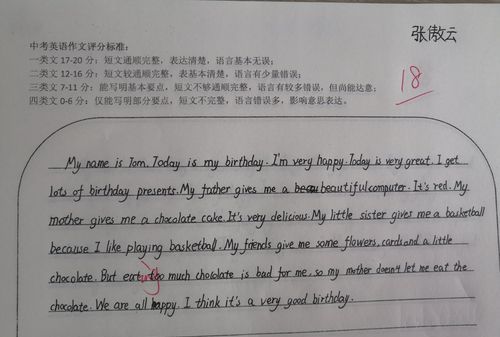 张傲云
中考英语作文评分标准：
一类文 17-20 分：短文通顺完整，表达清楚，语言基本无误；
18
二类文 12-16 分：短文较通顺完整，表基本清楚，语言有少量错误；
三类文 7-11 分：能写明基本要点，短文不够通顺完整，语言有较多错误，但尚能达意；
四类文 0-6 分：仅能写明部分要点，短文不完整，语言错误多，影响意思表达。
My name is Tom. Today is my birthday. I'm very happy. Today is very great. I get
lots of birthday presents. My father gives me a beautiful computer. It's red. My
mother gives me a chocolate cake. It's very delicious. My little sister gives me a basketball
because I like playing basketball. My friends give me some flowers, cards and a little
chocolate. But eating too much chocolate is bad for me, so my mother doesn't let me eat the
chocolate. We are all happy. I think it's a very good birthday.